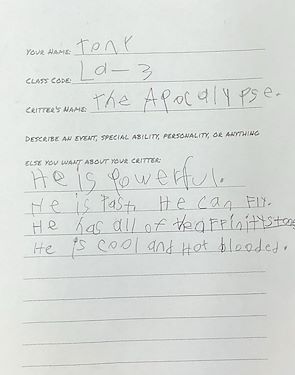 YOUR NAME: tony
CLASS CODE: La-3
CRITTER'S NAME: the Apocalypse.
DESCRIBE AN EVENT, SPECIAL ABILITY, PERSONALITY, OR ANYTHING
ELSE YOU WANT ABOUT YOUR CRITTER:
He is powerful.
He is fast, He can Fly.
He has all of the affinitystone
He is cool and Hot blooded.